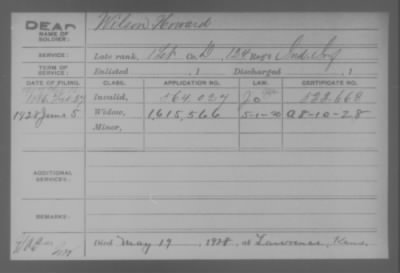 DEAD
NAME OF SOLDIER: Wilson Howard
SERVICE: Late rank, Co. D, 124 Reg't Ind. Inf
TERM OF SERVICE: Enlisted , 1 Discharged , 1
DATE OF FILING. CLASS. APPLICATION NO. LAW. CERTIFICATE NO.
Invalid, 564.027 522.668
1928 June 5 Widow, 1,615,566 5-1-20 A 8-10-28
Minor,
ADDITIONAL SERVICES:
REMARKS:
Died May 19, 1928, at Lawrence, Kans.